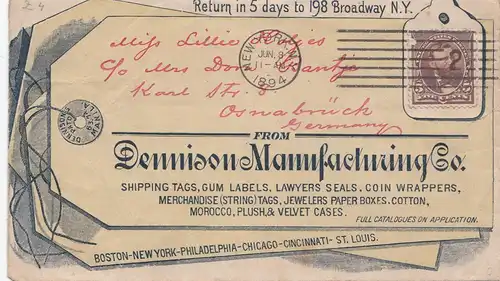 24
Return in 5 days to 198 Broadway N.Y.
Miss Lillie
C/o Mrs
Karl Str. 8
Osnabrück
Germany
NEW YORK, N.Y.
JUN. 8
11-AM
1894
2
FROM
Dennison Manufacturing Co.
SHIPPING TAGS, GUM LABELS, LAWYERS SEALS, COIN WRAPPERS,
MERCHANDISE (STRING) TAGS, JEWELERS PAPER BOXES, COTTON,
MOROCCO, PLUSH, & VELVET CASES.
FULL CATALOGUES ON APPLICATION.
BOSTON-NEW-YORK-PHILADELPHIA-CHICAGO-CINCINNATI- ST. LOUIS.